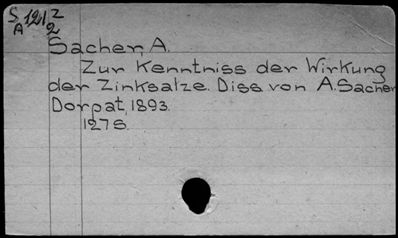 S 1212
A 2
Sacher, A.
Zur Kenntniss der Wirkung
der Zinksalze. Diss von A. Sacher
Dorpat, 1893.
127 S.